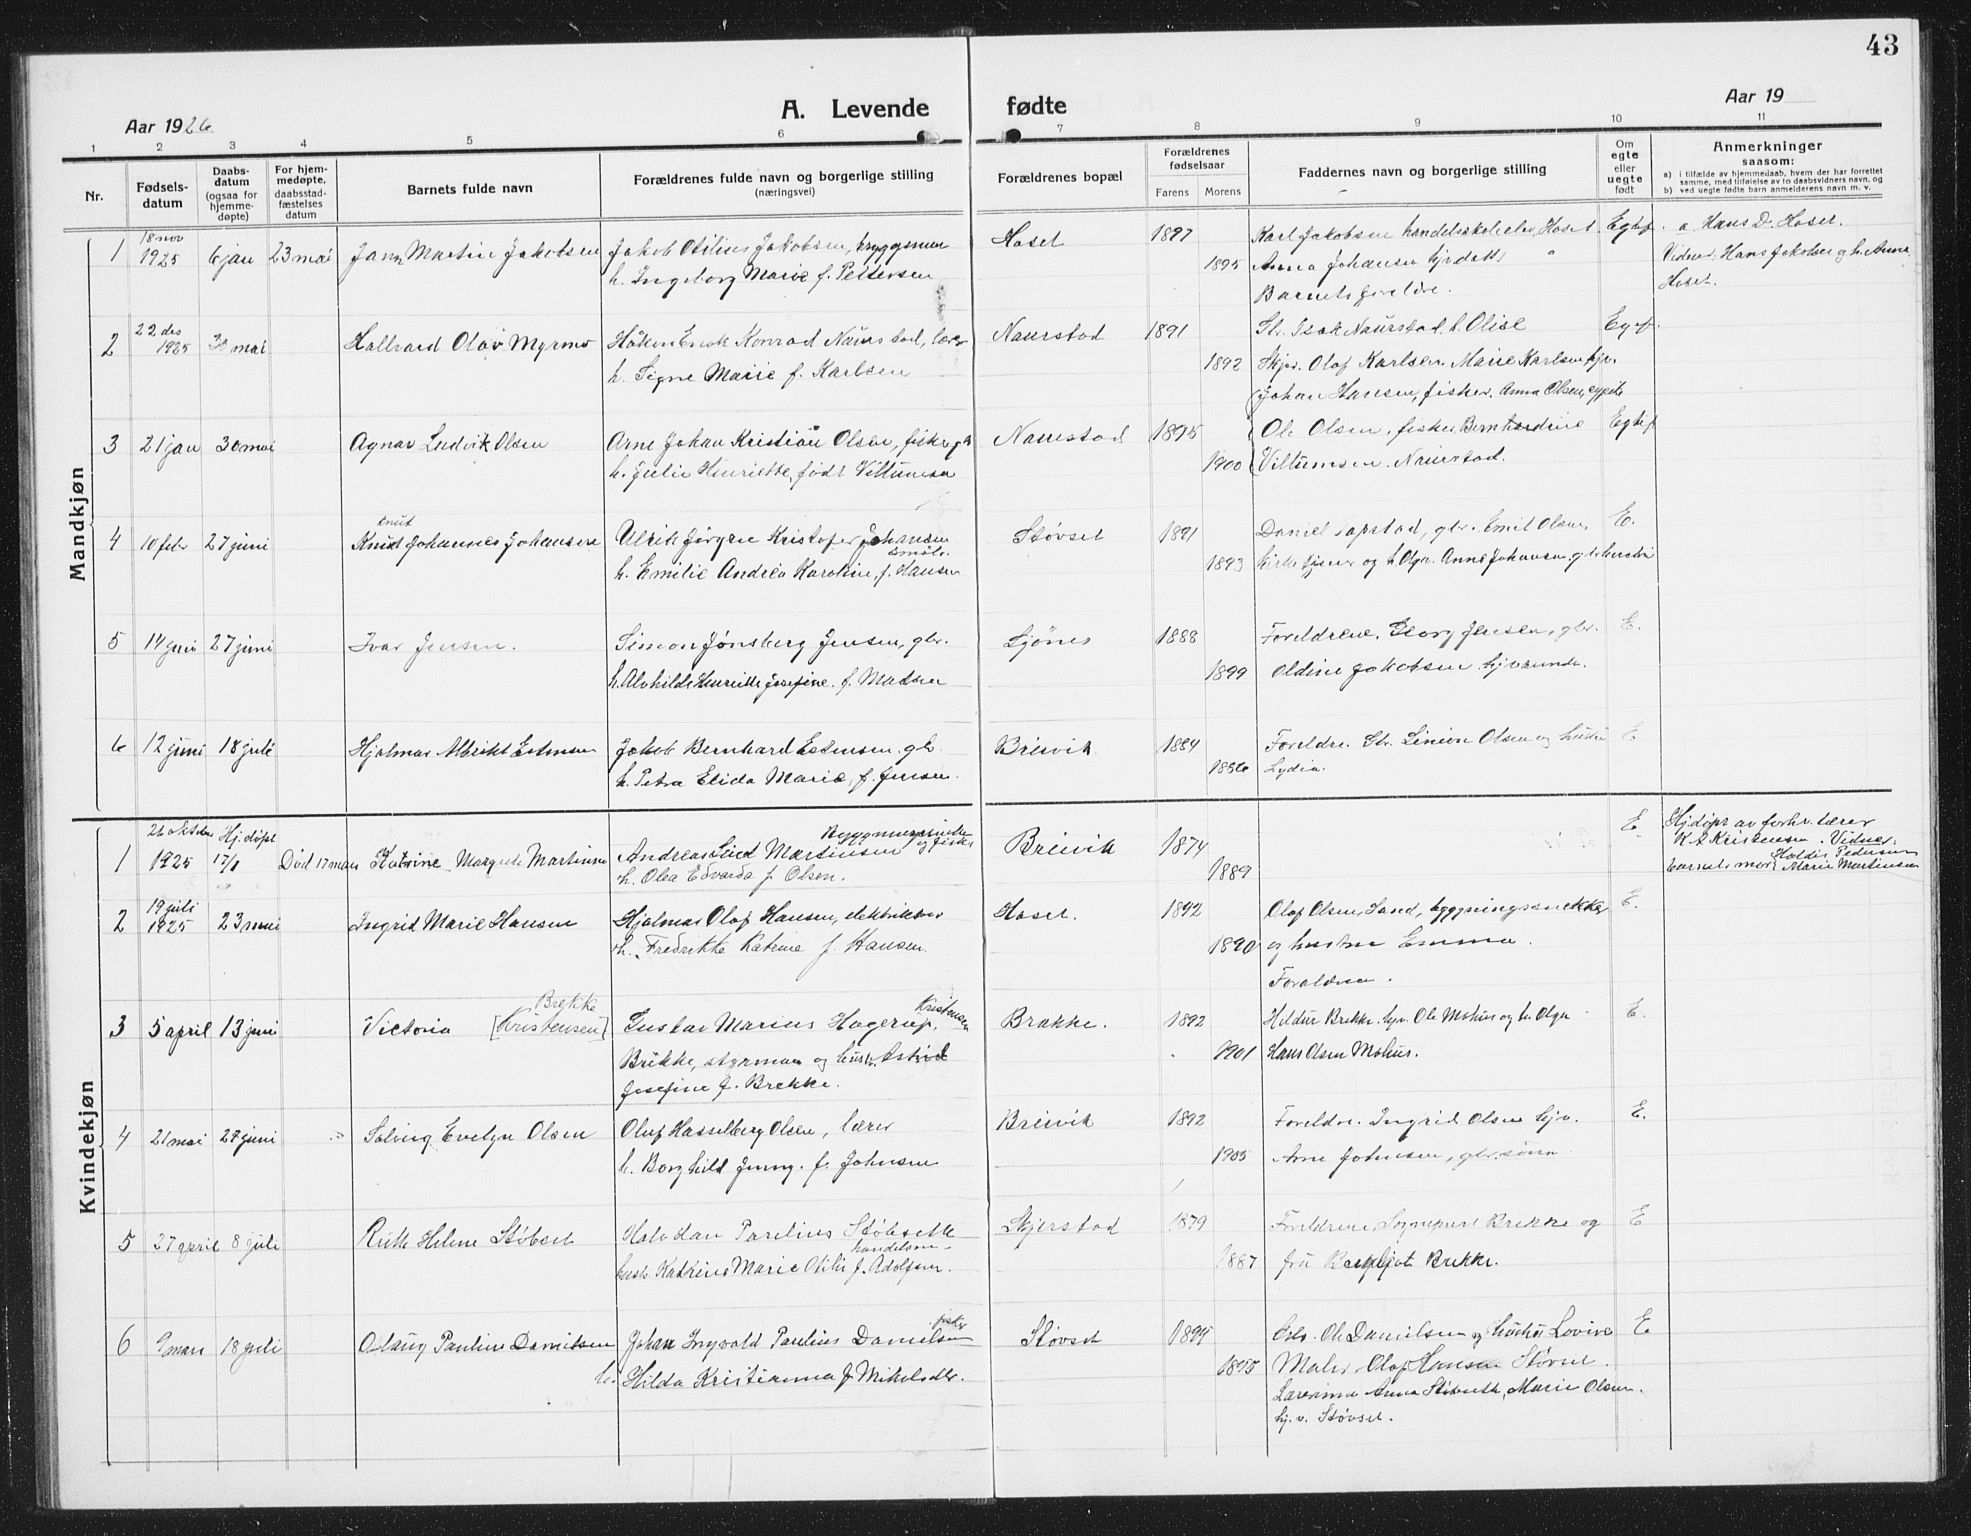 43
A. Levende fødte
Aar 1926
Aar 19
1 2 3 4 5 6 7 8 9 10 11
Nr.
Fødsels-
datum
Daabs-
datum
(ogsaa for
hjemme-
døpte)
For hjem-
medøpte,
daabsstad-
fæstelses
datum
Barnets fulde navn
Forældrenes fulde navn og borgerlige stilling
(næringsvei)
Forældrenes bopæl
Forældrenes
fødselsaar
Farens Morens
Faddernes navn og borgerlige stilling
Om
egte
eller
uegte
født
Anmerkninger
saasom:
a) i tilfælde av hjemmedaab, hvem der har forrettet
samme, med tilføielse av to daabsvidners navn, og
b) ved uegte fødte barn anmelderens navn m. v.
Mandkjøn
1 18 nov 1925 6 jan 23 mai Martin Jakobsen
Jakob Otilius Jakobsen, byggsnm
h. Ingeborg Marie f. Pettersen
Hoset 1897 1895
Karl Jakobsen handelsskoleelev, Hoset
Anna Johansen
Barnets foreldre.
Egtef. a. Hans D. Hoset.
Vidner. Hans Jakobsen og h. Anna
Hoset.
2 22 des 1925 30 mai Hallvard Olav Myrmo
Håkon Enok Konrad Naurstad, lærer
h. Signe Marie f. Karlsen
Naurstad 1891 1892
Isak Naurstad, h. Olise
Olof Karlsen. Marie Karlsen hjv.
Johan Hansen, fisker. Anna Olsen,
Egtf.
3 21 jan 30 mai Agnar Ludvik Olsen
Arne Johan Kristian Olsen, fisker,
h. Julie Henriette, født Viltumsen
Naurstad 1895 1900
Ole Olsen, fisker Bernhardine
Viltumsen. Naurstad.
Egtef
4 10 febr 27 juni Knut Johannes Johansen
Knut
Ulrik Jørgen Kristofer Johansen
h. Emilie Andrea Karoline, f. Hansen
Støvset 1891 1893
Daniel Tapstad, gbr. Emil Olsen,
og h. Olga. Anne Johansen, gbr.
E.
5 14 juni 27 juni Ivar Jensen.
Simon Jønsberg Jensen, gbr.
h. Alvhilde Henrikke Josefine. f. Madsen
Ljønes 1888 1899
Foreldrene. Georg Jensen, gbr.
Oldine Jakobsen
E.
6 12 juni 18 juli Hjalmar Albrikt Estensen
Jakob Bernhard Estensen, gbr.
h. Petra Elida Marie, f. Jensen.
Breivik 1884 1886
Foreldre. Gbr. Simon Olsen og hustru
Lydia.
E
Kvindekjøn
1 26 oktober 1925 Hj. døpt 17/1 Død 17 mars Katrine Margrete Martinsen
Andreas Martinsen og fisker
h. Olea Edvarda f. Olsen.
Breivik 1874 1889
E. Hj. døpt av forhv. lærer
K A Kristensen. Vidner.
barnets mor, Pedersen
Marie Martinsen
2 19 juli 1925 23 mai Ingrid Marie Hansen
Hjalmar Olaf Hansen, elektriker
h. Fredrikke Katrine f. Hansen.
Hoset. 1892 1890
Olaf Olsen, Sand, bygningssnekker
og hustru Emma.
Foreldrene.
E.
3 5 april 13 juni Victoria [Kristensen]
Brekke
Gustav Marius Hagerup, Kristensen
Brekke, styrmann og hustr. Astrid
Josefine f. Brekke.
Brække. 1892 1901
Hildur Brekke. hjv. Ole Mohus og h. Olga
Hans Olsen Mohus.
E.
4 21 mai 27 juni Solveig Evelyn Olsen
Oluf Hasselberg Olsen, lærer
h. Borghild Jenny. f. Johnsen
Breivik 1892 1905
Foreldre. Ingrid Olsen hjv.
Arne Johnsen, gbr.sønn
E.
5 27 april 8 juli Ruth Helene Støbset
Halvdan Parelius Støbseth
handelsm.
hustr. Katrine Marie Otilie f. Adolfsen.
Skjerstad 1879 1887
Foreldrene, Sogneprest Brekke og
fru Bergljot Brekke.
E
6 9 mars 18 juli Olaug Pauline Danielsen
Johan Ingvald Paulius Danielsen
fisker
h. Hilda Kristianna f. Mikalsdtr.
Støvset 1894 1895
Ole Danielsen og hustru Lovise
Maler Olaf Hansen Støvset.
Lærerinne Anna Støbseth, Marie Olsen.
hj. v. Støvset.
E